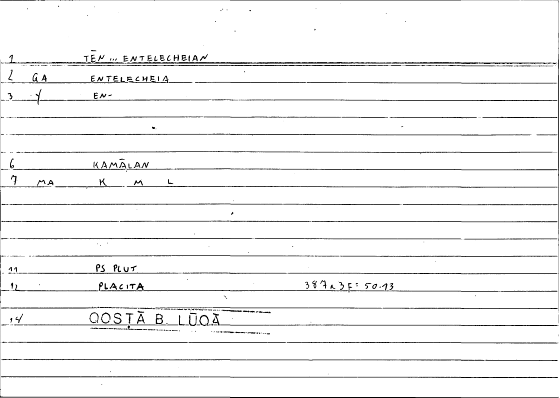 1 TĒN ... ENTELECHEIAN
2 GA ENTELECHEIA
3 Y EN-
6 KAMĀLAN
7 MA K M L
11 PS PLUT
12 PLACITA 387a3F = 50.13
14 QOSṬĀ B. LŪQĀ